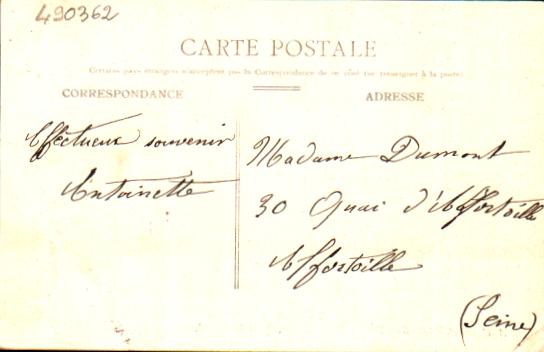 490362
CARTE POSTALE
Certains pays étrangers n'acceptent pas la Correspondance de ce côté (se renseigner à la poste)
CORRESPONDANCE
Affectueux souvenir
Antoinette
ADRESSE
Madame Dumont
30 Quai d'Alfortville
Alfortville
(Seine)